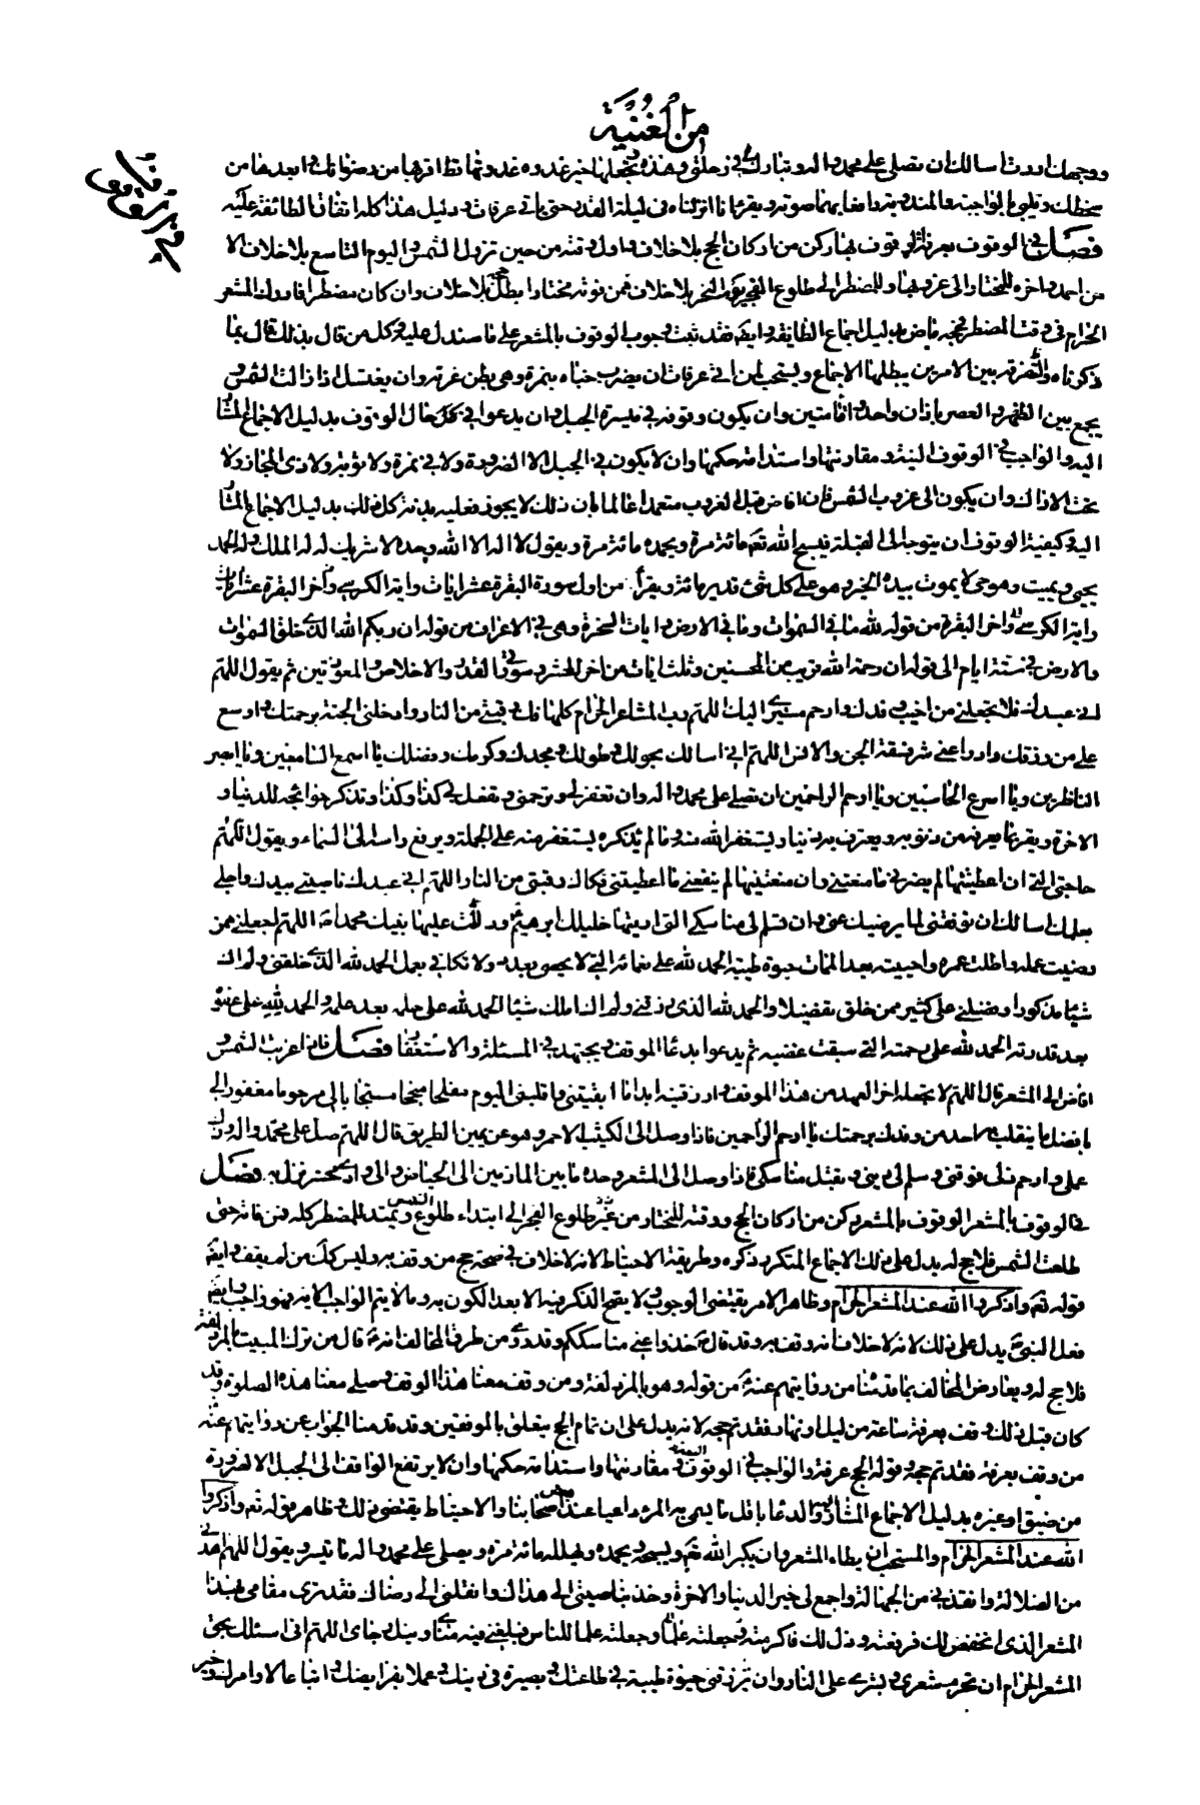 من الغنية
في الوقوف بعرفات
ووجهك اردت اسالك ان تصلى على محمد واله وتبارك لى في رحلتى وهذه تجعلها خير غدوة غدوتها قط اقربها من رضوانك وابعدها من
سخطك ويلبى بالواجبة والمندوبة رافعا بهما صوته ويقرء انا انزلناه فى ليلة القدر حتى ياتى عرفات ودليل هذا كله اتفاق الطائفة عليه
فصل في الوقوف بعرفة الوقوف بها ركن من اركان الحج بلا خلاف واول وقته من حين تزول الشمس اليوم التاسع بلا خلاف الا
من احمد واخره للمختار الى غروبها وللمضطر الى طلوع الفجر يوم النحر بلا خلاف فمن فوته مختارا بطل حجه بلا خلاف وان كان مضطرا فادرك المشعر
الحرام فى وقت المضطر فحجه ماض بدليل اجماع الطايفة وايضا فقد ثبت وجوب الوقوف بالمشعر على ما سندل عليه وكل من قال بذلك قال بما
ذكرناه والتفرقة بين الامرين يبطلها الاجماع ويستحب لمن اتى عرفات ان يضرب خباه بنمرة وهى بطن عرنة وان يغتسل اذا زالت الشمس و
يجمع بين الظهر والعصر باذان واحد واقامتين وان يكون وقوفه فى ميسرة الجبل وان يدعو في كل حال الوقوف بدليل الاجماع المشار
اليه والواجب في الوقوف النية ومقارنتها واستدامة حكمها وان لا يكون في الجبل الا لضرورة ولا في نمرة ولا ثوية ولا ذى المجاز ولا
تحت الاراك وان يكون الى غروب الشمس فان افاض قبل الغروب متعمدا عالما بان ذلك لا يجوز فعليه بدنة كل ذلك بدليل الاجماع المشار
اليه وكيفية الوقوف ان يتوجه الى القبلة فيسبح الله تعالى مائة مرة ويحمده مائة مرة ويقول لا اله الا الله وحده لا شريك له له الملك وله الحمد
يحيى ويميت وهو حى لا يموت بيده الخير وهو على كل شئ قدير مائة ويقرأ من اول سورة البقرة عشر ايات واية الكرسي واخر البقرة عشر ايات
واية الكرسي واخر البقرة من قوله لله ما في السموات وما في الارض وايات السخرة وهى في الاعراف من قوله ان ربكم الله الذي خلق السموات
والارض في ستة ايام الى قوله ان رحمة الله قريب من المحسنين وثلث ايات من اخر الحشر وسورة القدر والاخلاص والمعوذتين ثم يقول اللهم
انى عبدك فلا تجعلنى من اخيب وفدك وارحم مسيري اليك اللهم رب المشاعر الحرام كلها فك رقبتى من النار وادخلنى الجنة برحمتك واوسع
على من رزقك وادرا عنى شر فسقة الجن والانس اللهم انى اسالك بحولك وطولك ومجدك وكرمك وفضلك يا اسمع السامعين ويا ابصر
الناظرين ويا اسرع الحاسبين ويا ارحم الراحمين ان تصلى على محمد واله وان تغفر لى وترحمنى وتفعل بى كذا وكذا وتذكر حوائجه للدنيا و
الاخرة ويقر بما يعرفه من ذنوبه ويعترف به ذنبا ذنبا ويستغفر الله منه وما لم يذكره يستغفر منه على الجملة ويرفع راسه الى السماء ويقول اللهم
حاجتى التى ان اعطيتنيها لم يضرنى ما منعتنى وان منعتنيها لم ينفعنى ما اعطيتنى فكاك رقبتى من النار اللهم انى عبدك ناصيتى بيدك واجلى
بعلمك اسالك ان توفقنى لما يرضيك عنى وان تسلم لى مناسكى التى اريتها خليلك ابرهيم ودللت عليها نبيك محمدا اللهم اجعلنى ممن
رضيت عمله واطلت عمره واحييته بعد الممات حيوة طيبة الحمد لله على نعمائه التى لا يحصى بعدد ولا تكافى بعمل الحمد لله الذى خلقنى ولم اك
شيئا مذكورا وفضلنى على كثير ممن خلق تفضيلا والحمد لله الذى رزقنى ولم اك املك شيئا الحمد لله على حلمه بعد علمه والحمد لله على عفوه
بعد قدرته الحمد لله على رحمته التى سبقت غضبه ثم يدعوا بدعا الموقف ويجتهد في المسئلة والاستغفار فصل فاذا غربت الشمس
افاض الى المشعر قال اللهم لا تجعله اخر العهد من هذا الموقف وارزقنيه ابدا ما ابقيتنى واقلبنى اليوم مفلحا منجحا مستجابا لى مرحوما مغفورا لى
بافضل ما ينقلب به احد من وفدك برحمتك يا ارحم الراحمين فاذا وصل الى الكثيب الاحمر وهو عن يمين الطريق قال اللهم صل على محمد واله وزك
عملى وارحم ذل موقفى وسلم لى دينى وتقبل مناسكى فاذا وصل الى المشعر وحده ما بين المازمين الى الحياض والى وادى محسر نزل به فصل
في الوقوف بالمشعر الوقوف بالمشعر ركن من اركان الحج ووقته للمختار من طلوع الفجر الى ابتداء طلوع الشمس ويمتد للمضطر كله فمن فاته حتى
طلعت الشمس فلا حج له يدل على ذلك الاجماع المتكرر ذكره وطريقة الاحتياط لانه لا خلاف في صحة حج من وقف به وليس كك من لم يقف وايضا
قوله تعالى واذكروا الله عند المشعر الحرام وظاهر الامر يقتضى الوجوب ولا يصح الذكر فيه الا بعد الكون به وما لا يتم الواجب الا به فهو واجب وايضا
فعل النبى يدل على ذلك لانه لا خلاف انه وقف به وقد قال خذوا عنى مناسككم وقد روى من طرق المخالف انه قال من ترك المبيت بالمزدلفة
فلا حج له ويعارض المخالف بما قدمنا من روايتهم عنه من قوله وهو بالمزدلفة ومن وقف معنا هذا الموقف وصلى معنا هذه الصلوة وقد
كان قبل ذلك وقف بعرفة ساعة من ليل او نهار فقد تم حجه لانه يدل على ان تمام الحج يتعلق بالموقفين وقد قدمنا الجواب عن روايتهم عنه
من وقف بعرفة فقد تم حجه وقوله الحج عرفة والواجب في الوقوف النية ومقارنتها واستدامة حكمها وان لا يرتفع الواقف الى الجبل الا لضرورة
من ضيق او غيره بدليل الاجماع المشار اليه والدعا باقل ما يسمى به المرء داعيا عند بعض اصحابنا والاحتياط يقتضى ذلك وظاهر قوله تعالى واذكروا
الله عند المشعر الحرام والمستحب ان يطاء المشعر وان يكبر الله تعالى ويسبحه ويحمده ويهلله مائة مرة ويصلى على محمد واله ما تيسر ويقول اللهم اهدنى
من الضلالة وانقذنى من الجهالة واجمع لى خير الدنيا والاخرة وخذ بناصيتى الى هداك وانقلنى الى رضاك فقد ترى مقامى بهذا
المشعر الذى انخفض لك فرفعته وذل لك فاكرمته وجعلته علما للناس فبلغنى فيه مناى ونيل رجاى اللهم انى اسئلك بحق
المشعر الحرام ان تحرم شعرى وبشرى على النار وان ترزقنى حيوة طيبة في طاعتك وبصيرة فى دينك وعملا بفرايضك واتباعا لاوامرك وخير